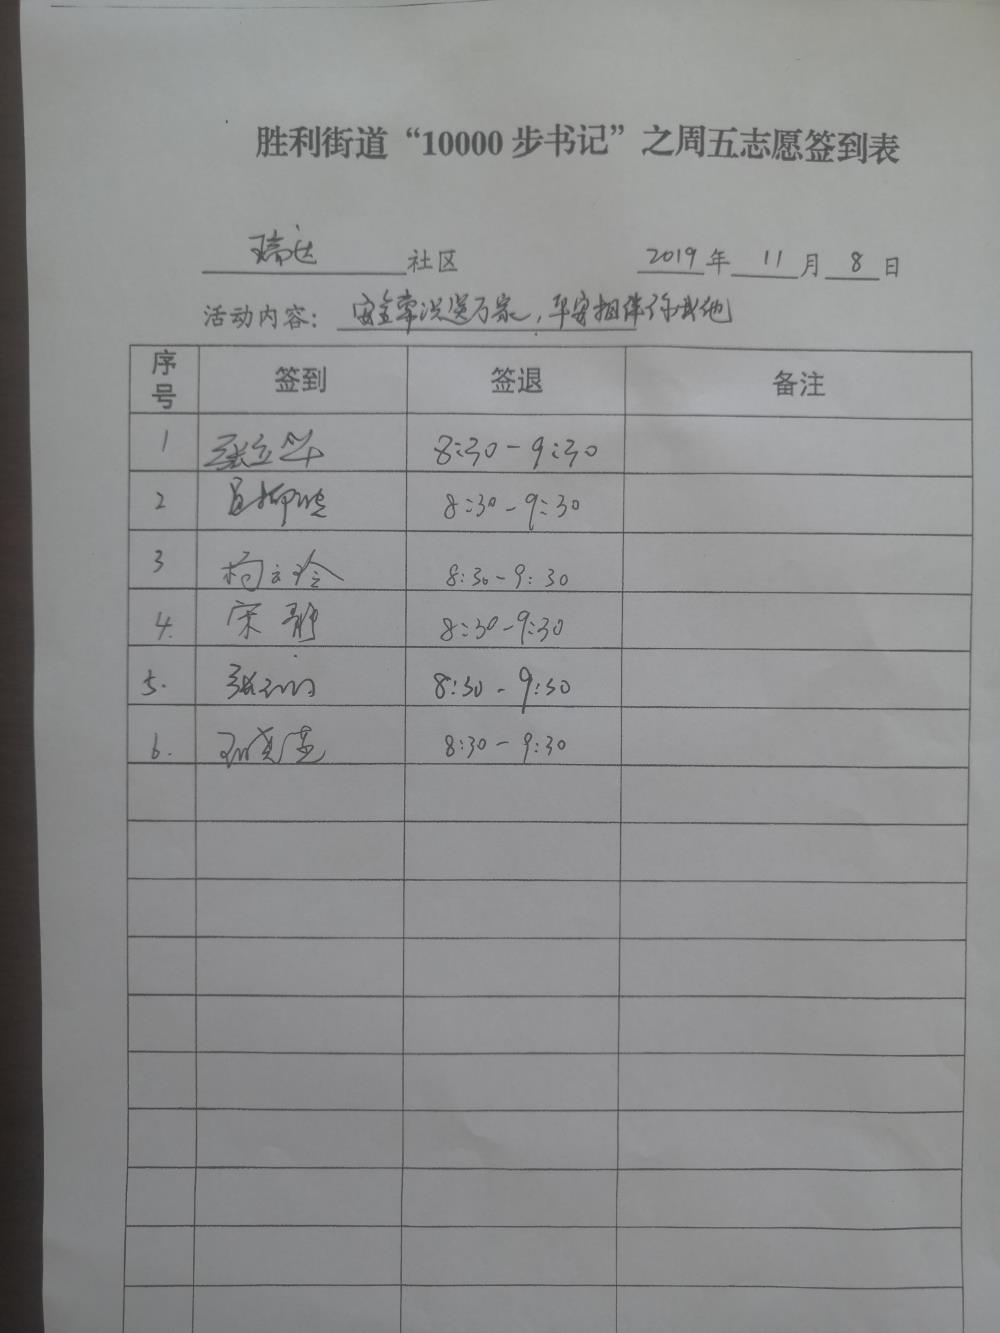 胜利街道“10000步书记”之周五志愿签到表
瑞达社区 2019年11月8日
活动内容：安全常识送万家，平安相伴你我他
序号 签到 签退 备注
1 张立华 8:30-9:30
2 8:30-9:30
3 杨立玲 8:30-9:30
4. 宋静 8:30-9:30
5. 张 8:30-9:30
6. 8:30-9:30